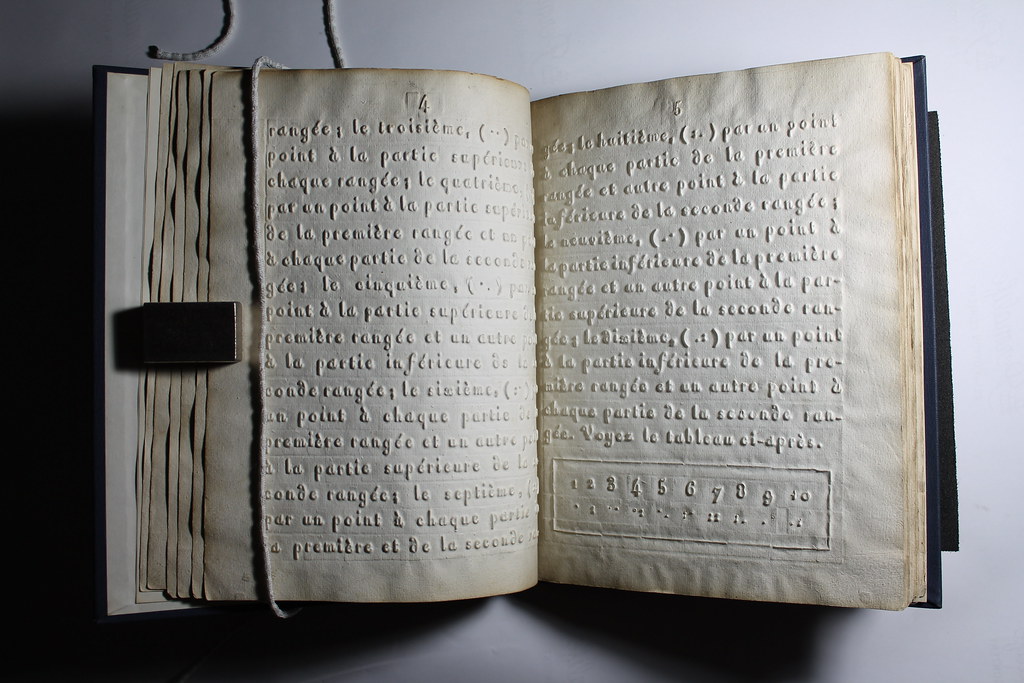 4
rangée; le troisième, (··) par
point à la partie supérieure
chaque rangée; le quatrième,
par un point à la partie supérieure
de la première rangée et un
à chaque partie de la seconde
gée; le cinquième, (·.) par
point à la partie supérieure
première rangée et un autre
à la partie inférieure de la
conde rangée; le sixième, (:·)
un point à chaque partie de
première rangée et un autre
à la partie supérieure de la
conde rangée; le septième, (
par un point à chaque partie
la première et de la seconde
5
gée; le huitième, (:.) par un point
à chaque partie de la première
rangée et autre point à la partie
inférieure de la seconde rangée;
le neuvième, (.·) par un point à
la partie inférieure de la première
rangée et un autre point à la par-
tie supérieure de la seconde ran-
gée; le dixième, (.:) par un point
à la partie inférieure de la pre-
mière rangée et un autre point à
chaque partie de la seconde ran-
gée. Voyez le tableau ci-après.
1 2 3 4 5 6 7 8 9 10